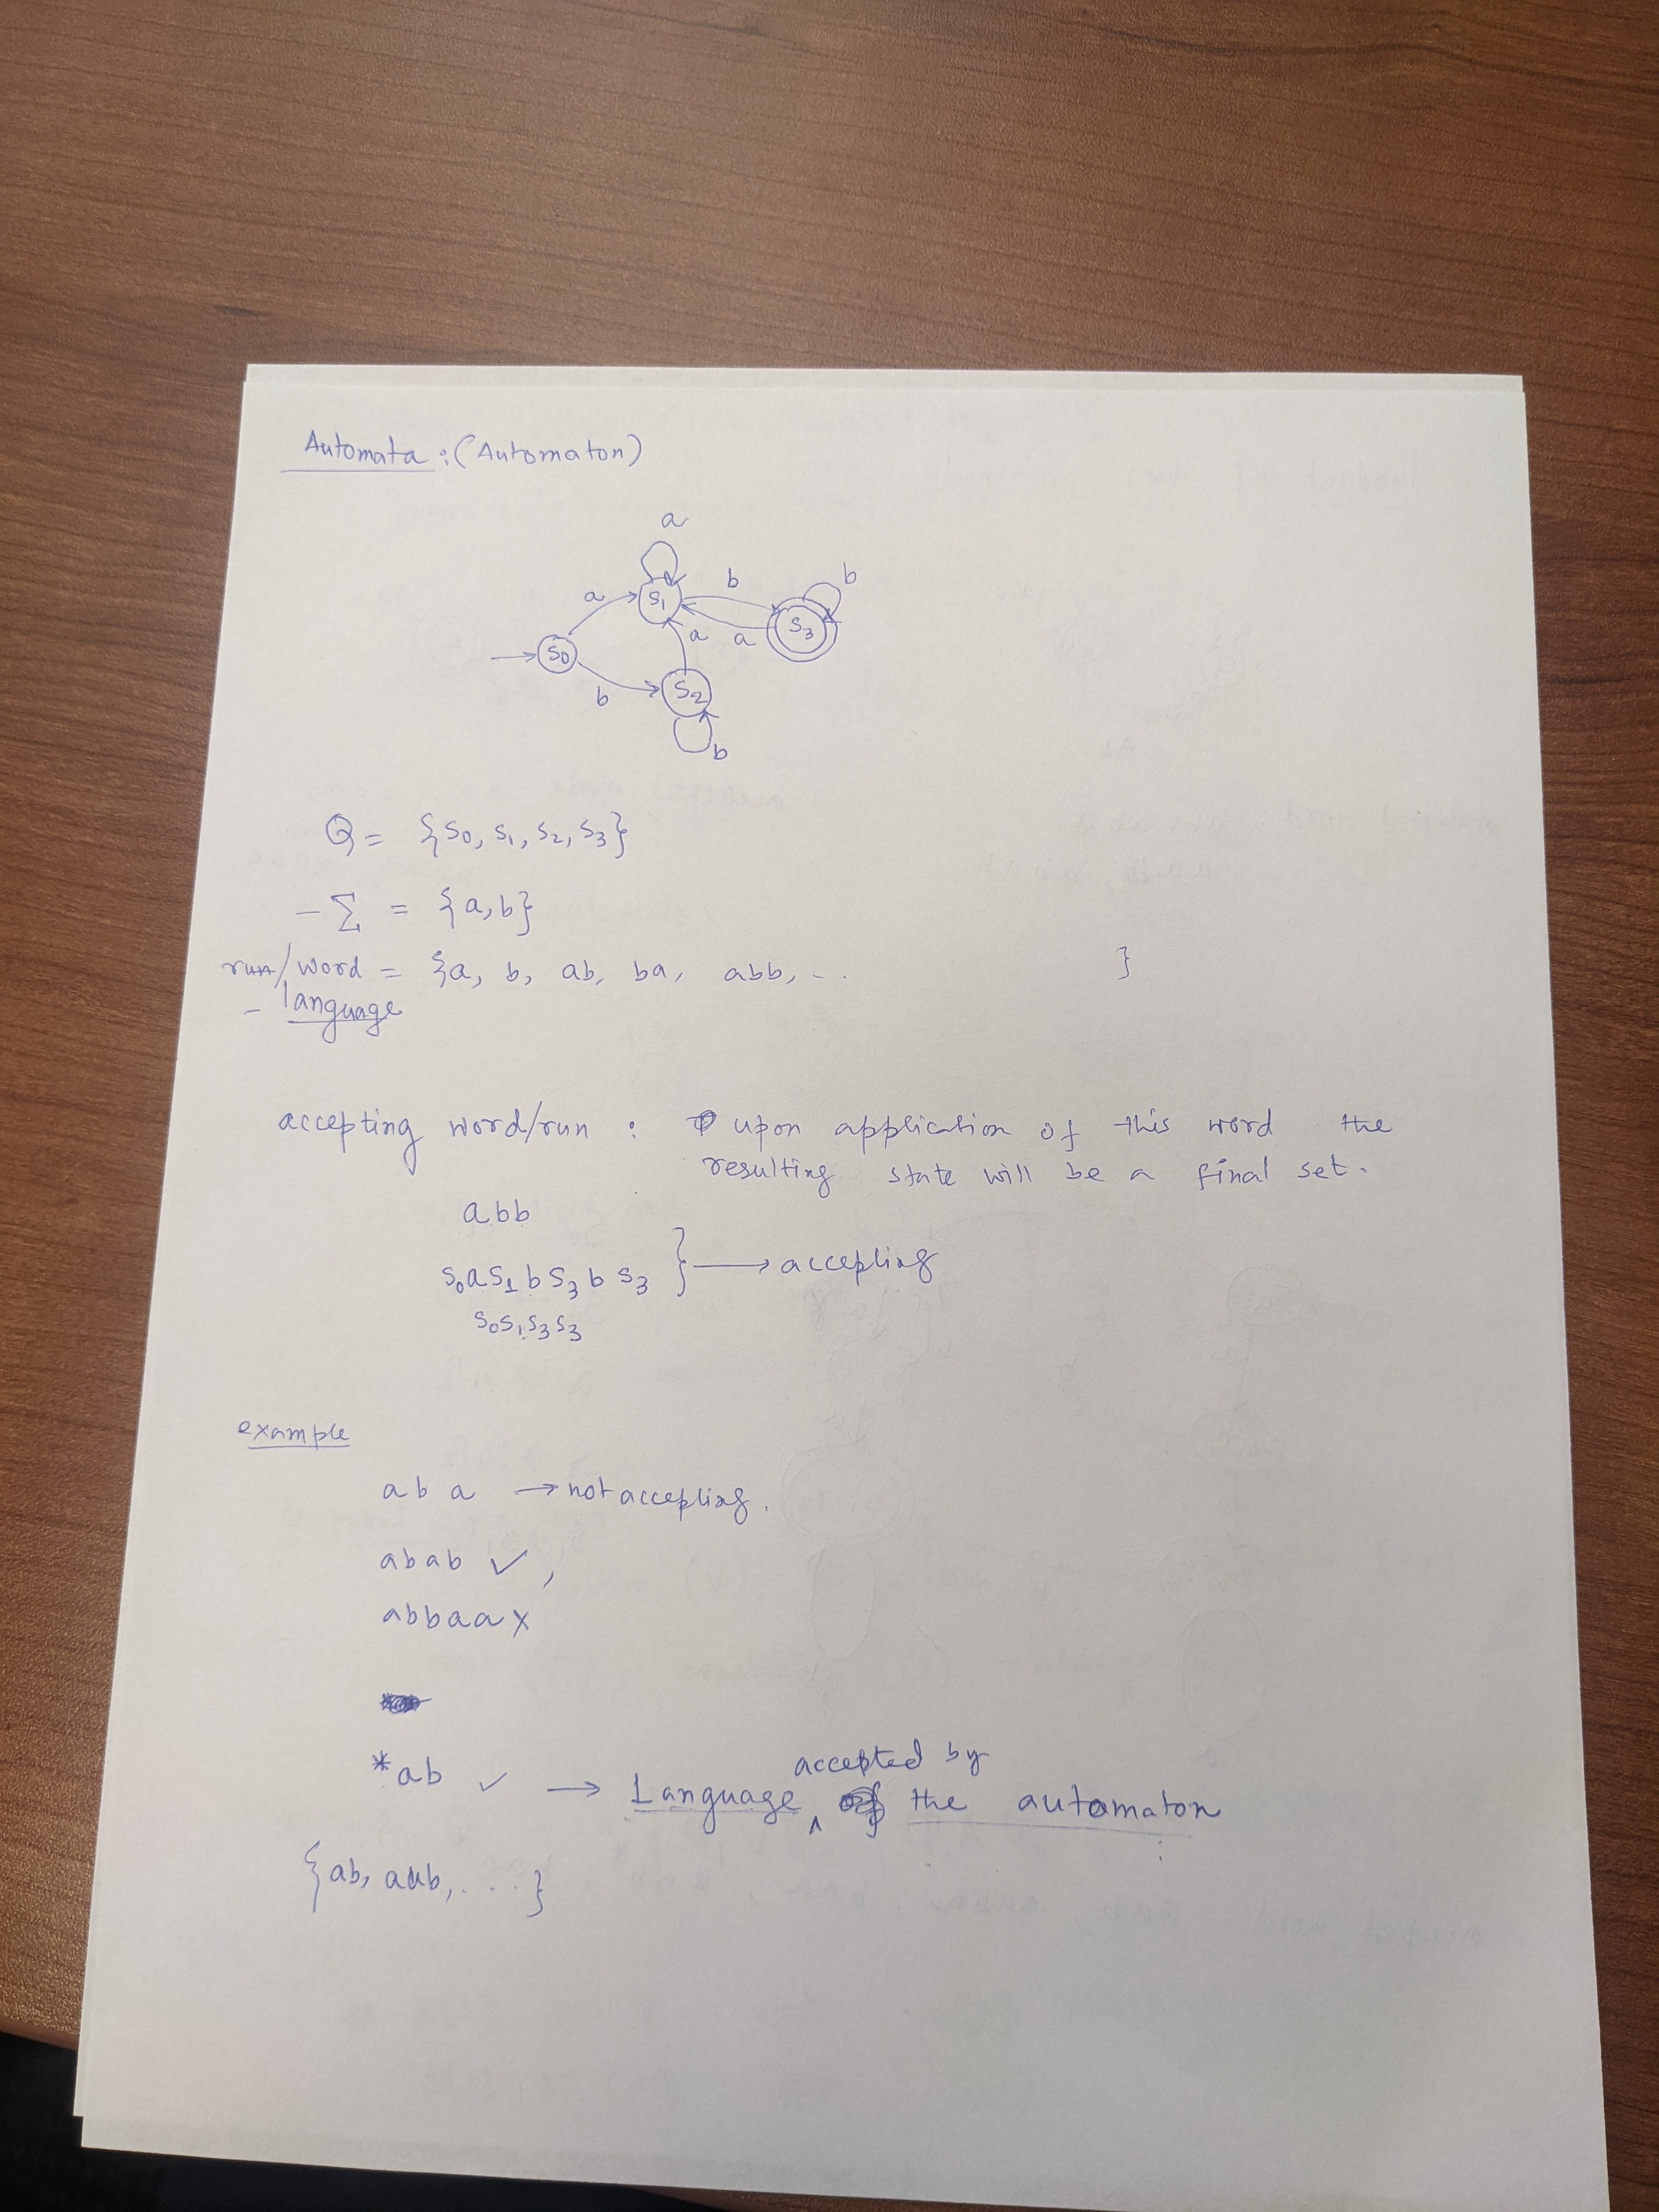 Automata : (Automaton)
a
a
b
b
S0
S1
a
a
S3
b
S2
b
Q = {S0, S1, S2, S3}
- Σ = {a, b}
run/word = {a, b, ab, ba, abb, ... }
- language
accepting word/run : upon application of this word the
resulting state will be a final set.
abb
S0 a S1 b S3 b S3 } → accepting
S0 S1 S3 S3
example
a b a → not accepting.
abab ✓,
abbaa x
*ab ✓ → Language accepted by the automaton
{ab, aab, ... }